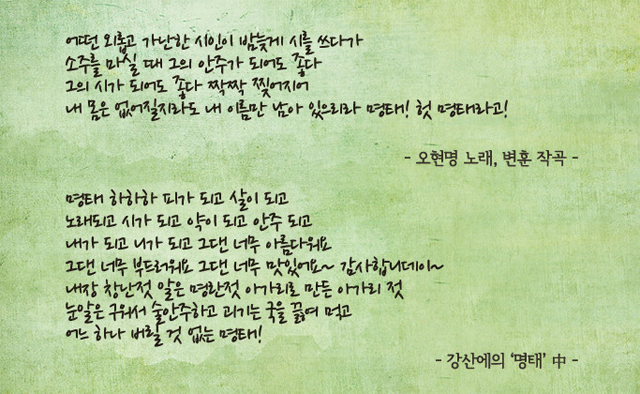 어떤 외롭고 가난한 시인이 밤늦게 시를 쓰다가
소주를 마실 때 그의 안주가 되어도 좋다
그의 시가 되어도 좋다 짝짝 찢어지어
내 몸은 없어질지라도 내 이름만 남아 있으리라 명태! 헛 명태라고!
- 오현명 노래, 변훈 작곡 -
명태 하하하 피가 되고 살이 되고
노래되고 시가 되고 약이 되고 안주 되고
내가 되고 니가 되고 그댄 너무 아름다워요
그댄 너무 부드러워요 그댄 너무 맛있어요~ 감사합니데이~
내장 창난젓 알은 명란젓 아가리로 만든 아가리 젓
눈알은 구워서 술안주하고 괴기는 국을 끓여 먹고
어느 하나 버릴 것 없는 명태!
- 강산에의 ‘명태’ 中 -